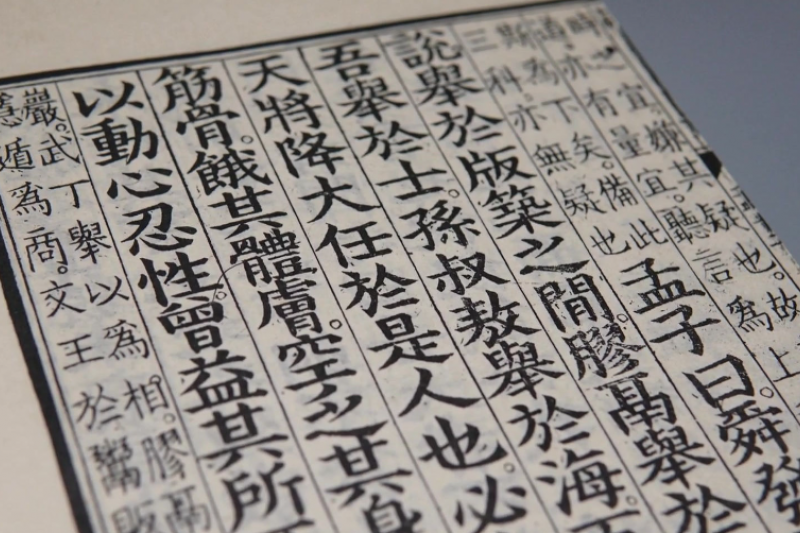 之宜嫌其疑也故
亦有量宜。聽言爲上
孟子曰。舜發
說舉於版築之間。膠鬲舉於
吾舉於士。孫叔敖舉於海。
天將降大任於是人也。必
筋骨。餓其體膚。空乏其身
以動心忍性。曾益其所
嚴。武丁舉以爲相。膠鬲
遁爲商。文王於鬻販